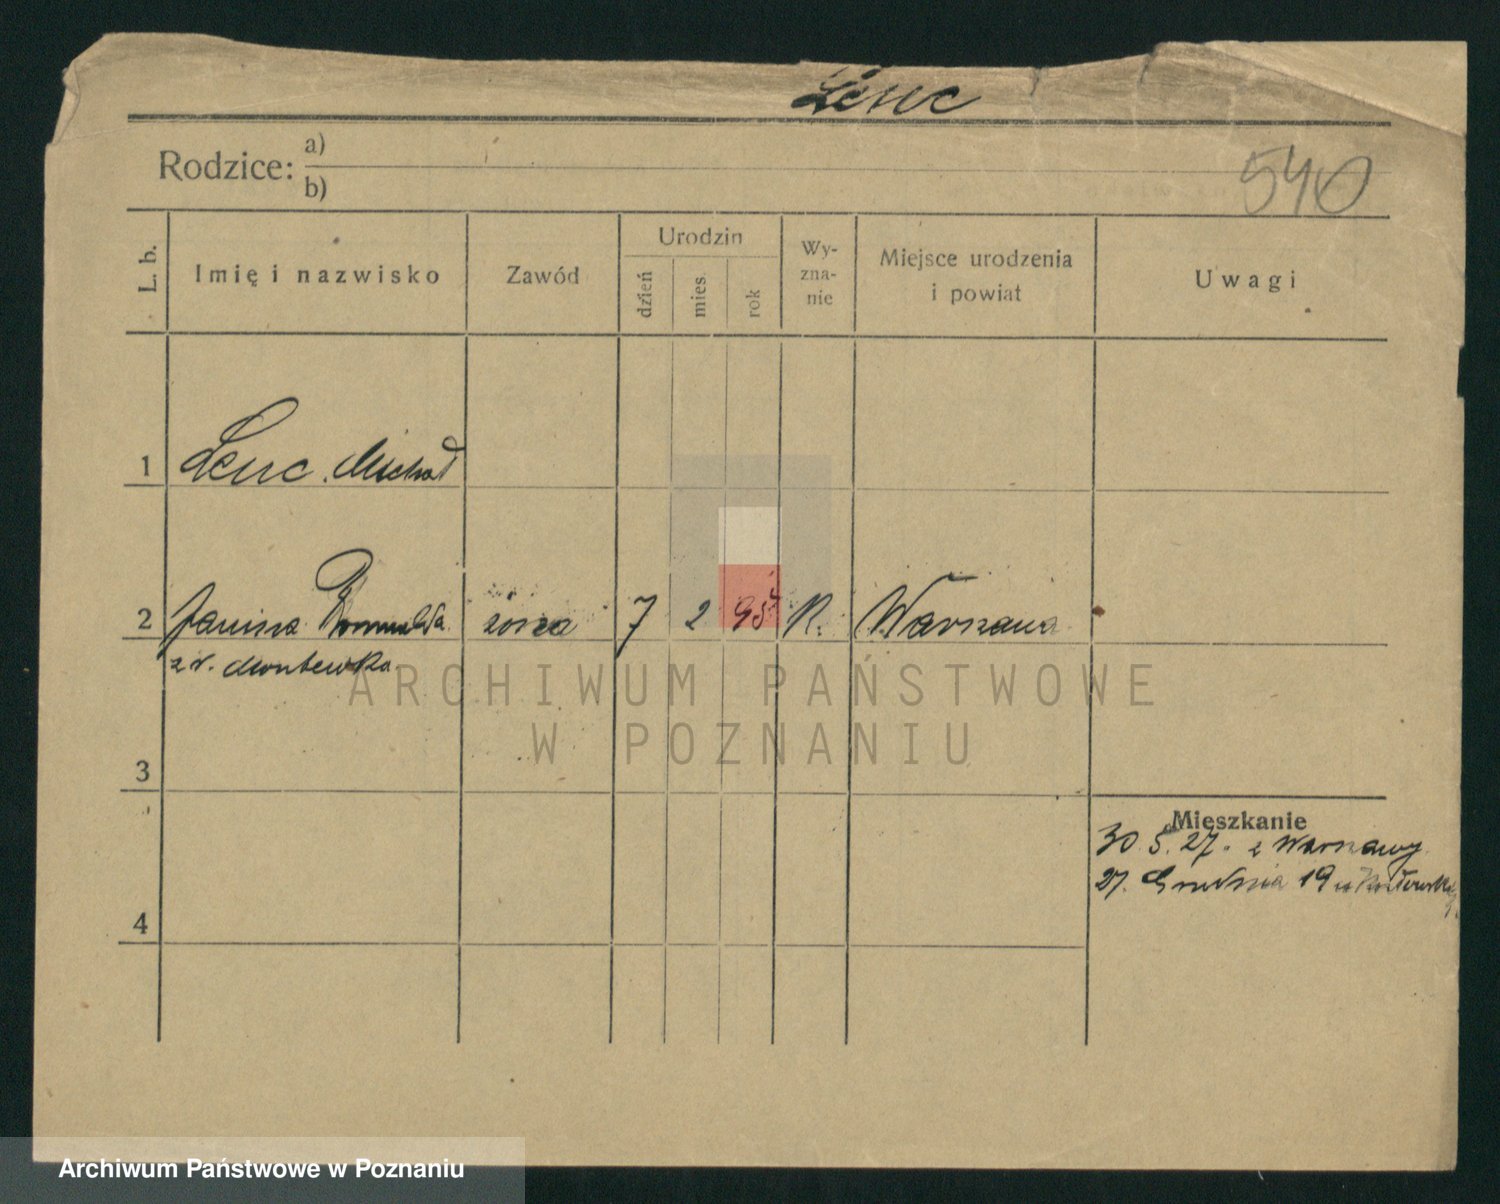 Lenc
Rodzice: a)
b)
540
L. b.
Imię i nazwisko
Zawód
Urodzin
dzień
mies.
rok
Wy-
zna-
nie
Miejsce urodzenia
i powiat
Uwagi
1 Lenc Michał
2 Janina Romualda żona 7 2 95 R. Warszawa
z r. Montewka
3
ARCHIWUM PAŃSTWOWE
W POZNANIU
Mieszkanie
30.5.27. z Warszawy
27. Grudnia 19
4
Archiwum Państwowe w Poznaniu